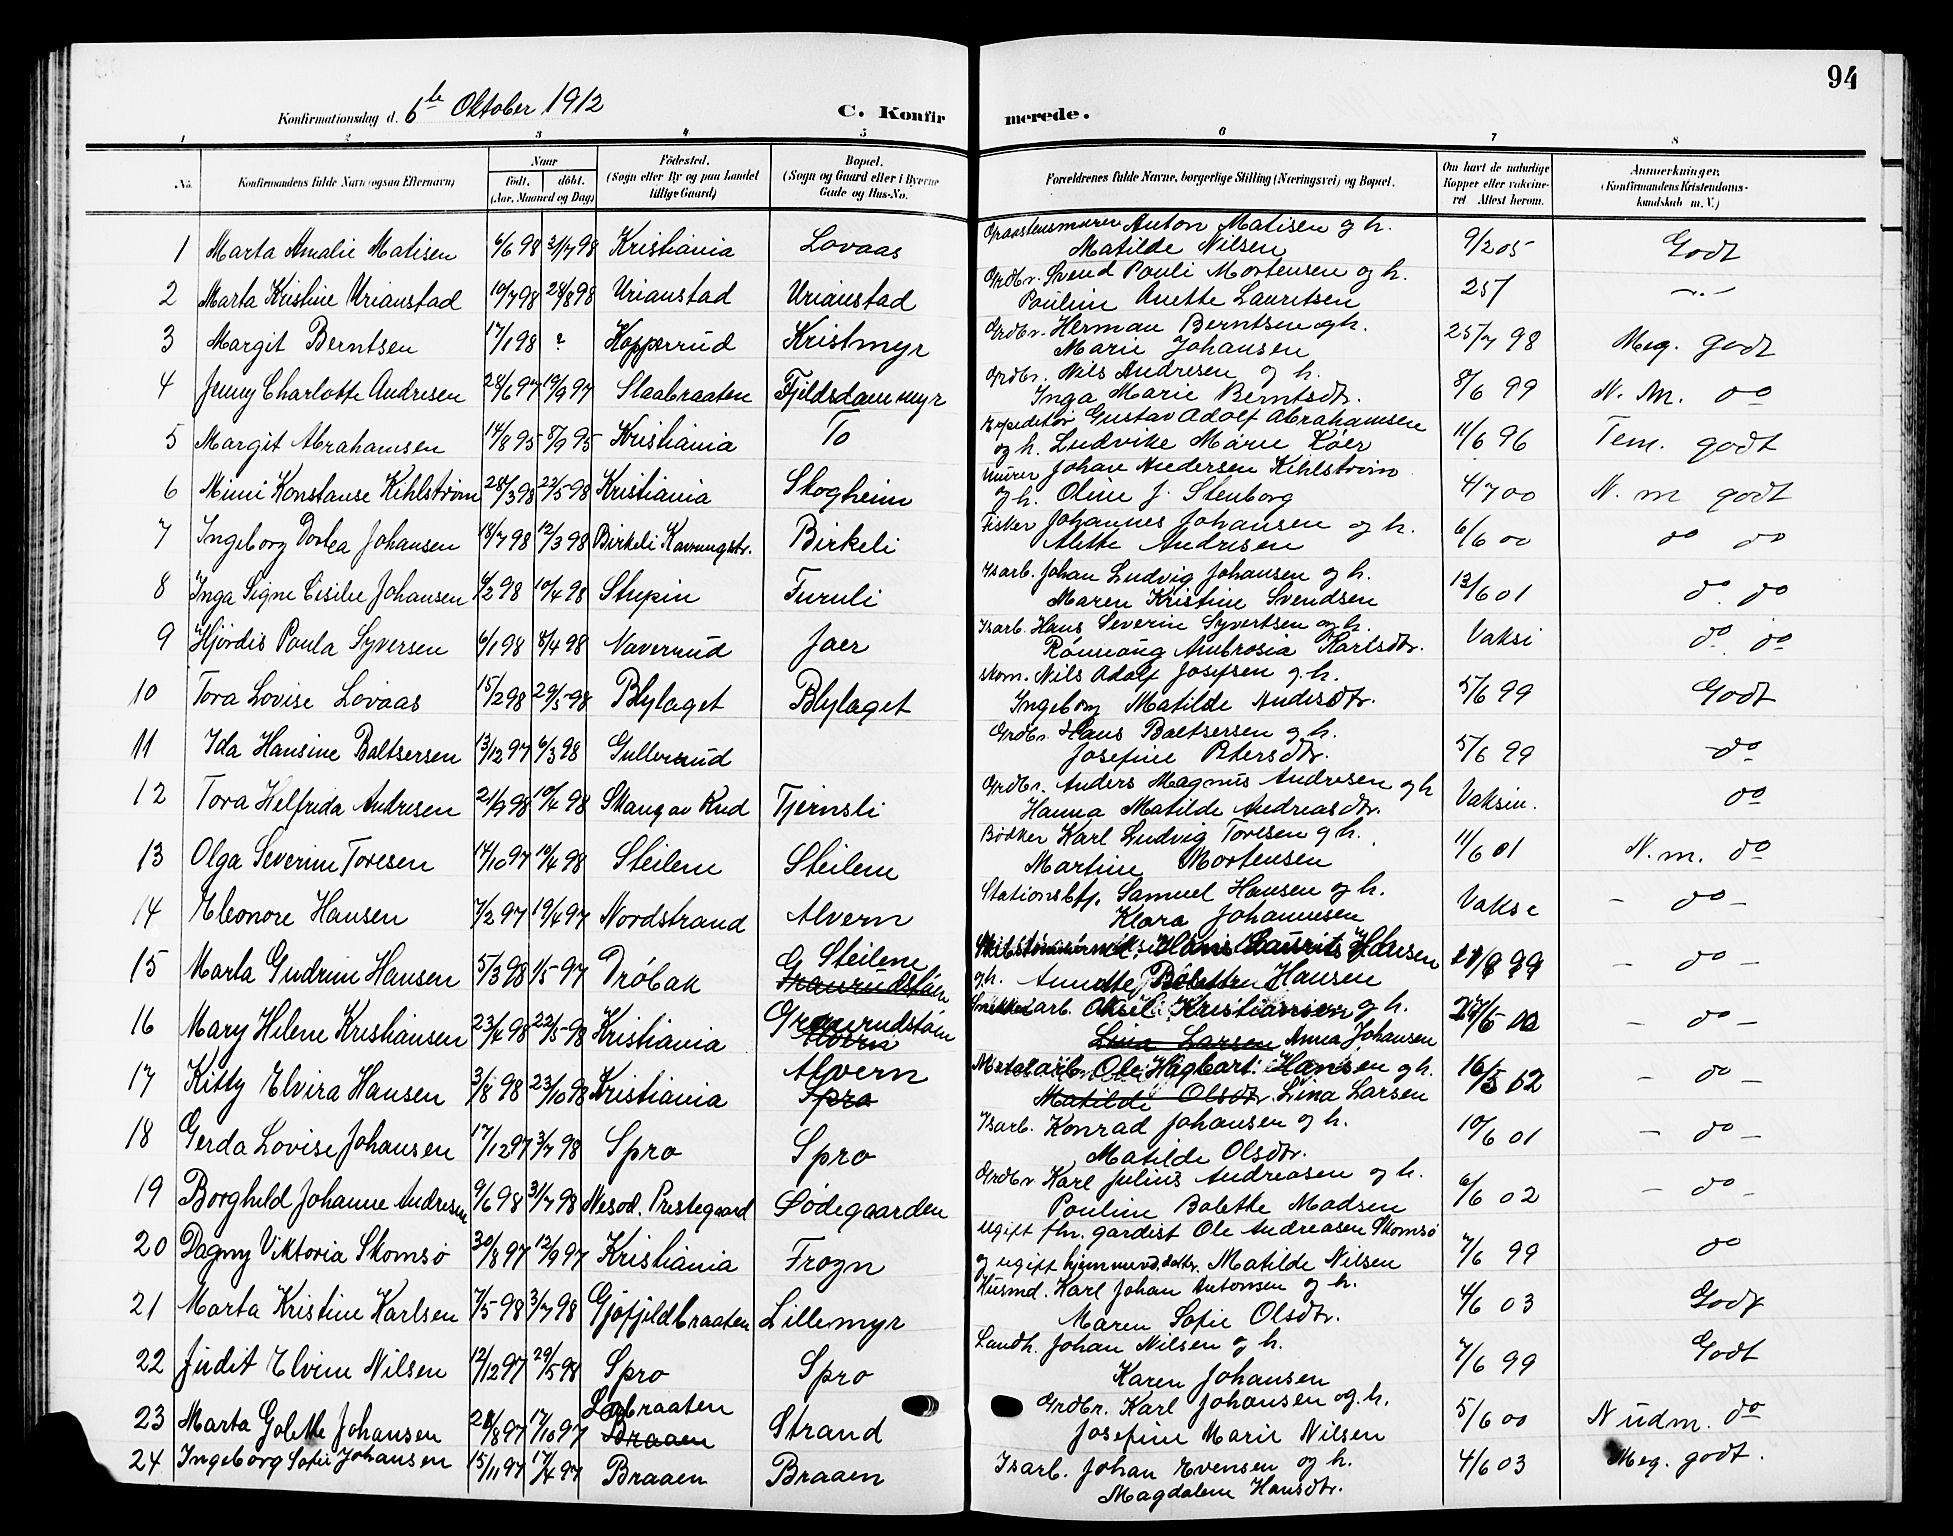 94
Konfirmationsdag d. 6te Oktober 1912 C. Konfirmerede.
1 2 3 4 5 6 7 8
No. Konfirmandens fulde Navn (ogsaa Efternavn) Naar født. døbt. (Aar, Maaned og Dag) Födested. (Sogn eller By og paa Landet tillige Gaard) Bopæl. (Sogn og Gaard eller i Byerne Gade og Hus-No. Forældrenes fulde Navne, borgerlige Stilling (Næringsvei) og Bopæl. Om havt de naturlige Kopper eller vakcineret Attest herom. Anmerkninger. (Konfirmandens Kristendomskundskab m. V.)
1 Marta Amalie Matisen 6/6 98 31/7 98 Kristiania Lovaas Graastensmurer Anton Matisen og h. 9/2 05 Godt
Matilde Nilsen
2 Marta Kristine Urianstad 10/7 98 28/8 98 Urianstad Urianstad Grdbr. Svend Pouli Mortensen og h. 25/ -"-
Pouline Anette Lauritsen
3 Margit Berntsen 17/1 98 ? Kopperud Kristmyr Grdbr. Herman Berntsen og h. 25/7 98 Meg. godt
Marie Johansen
4 Jenny Charlotte Andresen 28/6 97 19/9 97 Slaabraaten Fjeldsdammyr Grdbr. Nils Andresen og h. 8/6 99 N. M. do
Inga Marie Berntsdtr.
5 Margit Abrahamsen 14/8 95 8/9 95 Kristiania To Expeditør Gustav Adolf Abrahamsen 11/6 96 Tem. godt
og h. Ludvike Marie Koer
6 Mimi Konstanse Kihlstrøm 28/3 98 22/5 98 Kristiania Skogheim Murer Johan Andersen Kihlstrøm 4/7 00 N. m godt
og h. Oline J. Stenborg
7 Ingeborg Dortea Johansen 18/7 98 12/3 98 Birkeli Kavringstr. Birkeli Fisker Johannes Johansen og h. 6/6 00 do do
Alette Andresen
8 Inga Signe Cisilie Johansen 6/2 98 10/4 98 Stupin Furuli Isarb. Johan Ludvig Johansen og h. 13/6 01 do do
Maren Kristine Svendsen
9 Hjørdis Paula Syversen 6/1 98 8/4 98 Naverud Jaer Isarb. Hans Severin Syvertsen og h. Vaksi do do
Rønnaug Ambrosia Karlsdtr.
10 Tora Lovise Lovaas 15/2 98 29/5 98 Blylaget Blylaget skom. Nils Adolf Josefsen og h. 5/6 99 Godt
Ingeborg Matilde Andersdtr.
11 Ida Hansine Baltsersen 13/12 97 6/3 98 Gullerud Grdbr. Hans Baltsersen og h. 5/6 99 do
Josefine Petersdtr.
12 Tora Helfrida Andresen 21/9 98 10/4 98 Skaug av Rud Tjernsli Grdbr. Anders Magnus Andresen og h Vaksin. do
Hanna Matilde Andreasdtr.
13 Olga Severine Toresen 14/10 97 10/4 98 Steilene Steilene Bødker Karl Ludvig Toresen og h. 11/6 01 N. m. do
Martine Mortensen
14 Eleonore Hansen 7/2 97 19/4 97 Nordstrand Alvern Stationsbtj. Samuel Hansen og h. Vaksi - do -
Klara Johannesen
15 Marta Gudrun Hansen 5/3 98 1/5 97 Drøbak G Steilene Hans Laurits Hansen 21/9 99 - do -
Graurudstøen og h. Annette Bolette Hansen
16 Mary Helene Kristiansen 23/4 98 22/5 98 Kristiania Graurudstøen Snekkerarb. Aksel Kristiansen og h. 27/5 00 - do -
Alvern Lina Larsen Anna Johansen
17 Kitty Elvira Hansen 3/8 98 23/10 98 Kristiania Alvern Metalarb. Ole Hagbart Hansen og h. 16/5 02 - do -
Spro Matilde Olsdtr. Lina Larsen
18 Gerda Lovise Johansen 17/12 97 3/7 98 Spro Spro Isarb. Konrad Johansen og h. 10/6 01 - do -
Matilde Olsdtr.
19 Borghild Johanne Andresen 9/6 98 31/7 98 Nesod. Prestegaard Sødegaarden Grdbr Karl Julius Andreasen og h. 6/6 02 - do -
Pouline Bolette Madsen
20 Dagny Viktoria Skomsø 30/8 97 12/9 97 Kristiania Frogn ugift fhn. gardist Ole Andreasen Skomsø 7/6 99 do
og ugift hjemmevd. datter. Matilde Nilsen
21 Marta Kristine Karlsen 7/5 98 3/7 98 Gjøfjeldbraaten Lillemyr Husmd. Karl Johan Antonsen og h. 4/6 03 Godt
Maren Sofie Olsdtr.
22 Judit Elvine Nilsen 12/12 97 29/5 98 Spro Spro Landh. Johan Nilsen og h. 7/6 99 Godt
Karen Johansen
23 Marta Golette Johansen 28/8 97 17/10 97 Labraaten Strand Grdbr. Karl Johansen og h. 5/6 00 N udm. do
Braaen Josefine Marie Nilsen
24 Ingeborg Sofie Johansen 15/11 97 17/4 97 Braaen Braaen Isarb. Johan Evensen og h. 4/6 03 Meg. godt.
Magdalene Hansdtr.